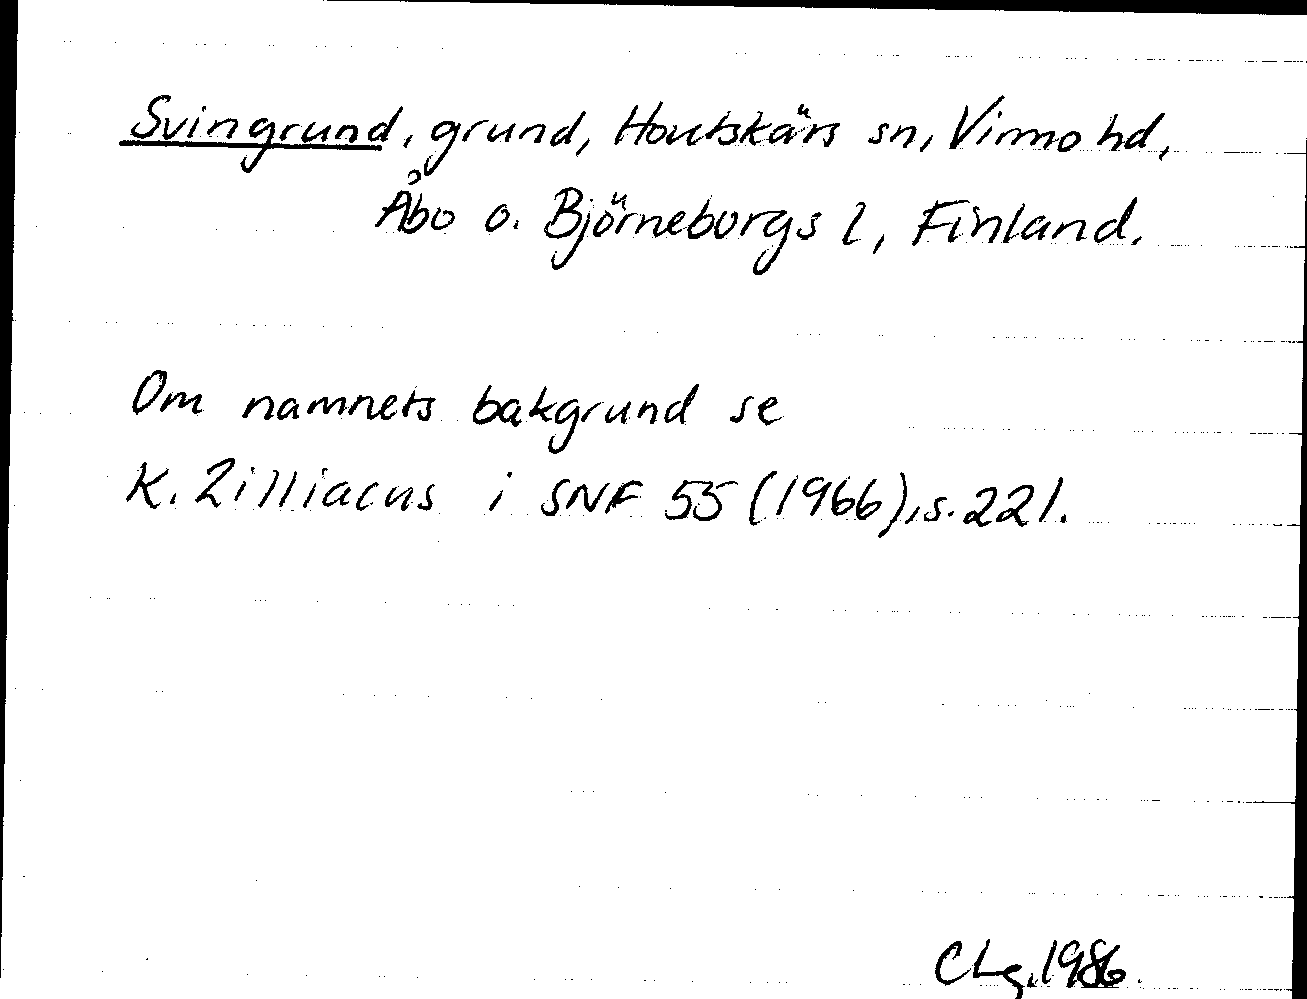 Svingrund, grund, Houtskärs sn, Virmo hd,
Åbo o. Björneborgs l, Finland.
Om namnets bakgrund se
K. Zilliacus i SNF 55 (1966), s. 221.
CLg. 1986.